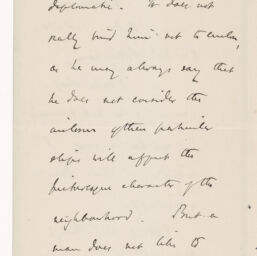 diplomatic. It does not
really bind him not to enclose,
as he may always say that
he does not consider the
enclosure of these particular
slips will affect the
picturesque character of the
neighbourhood. But a
man does not like to